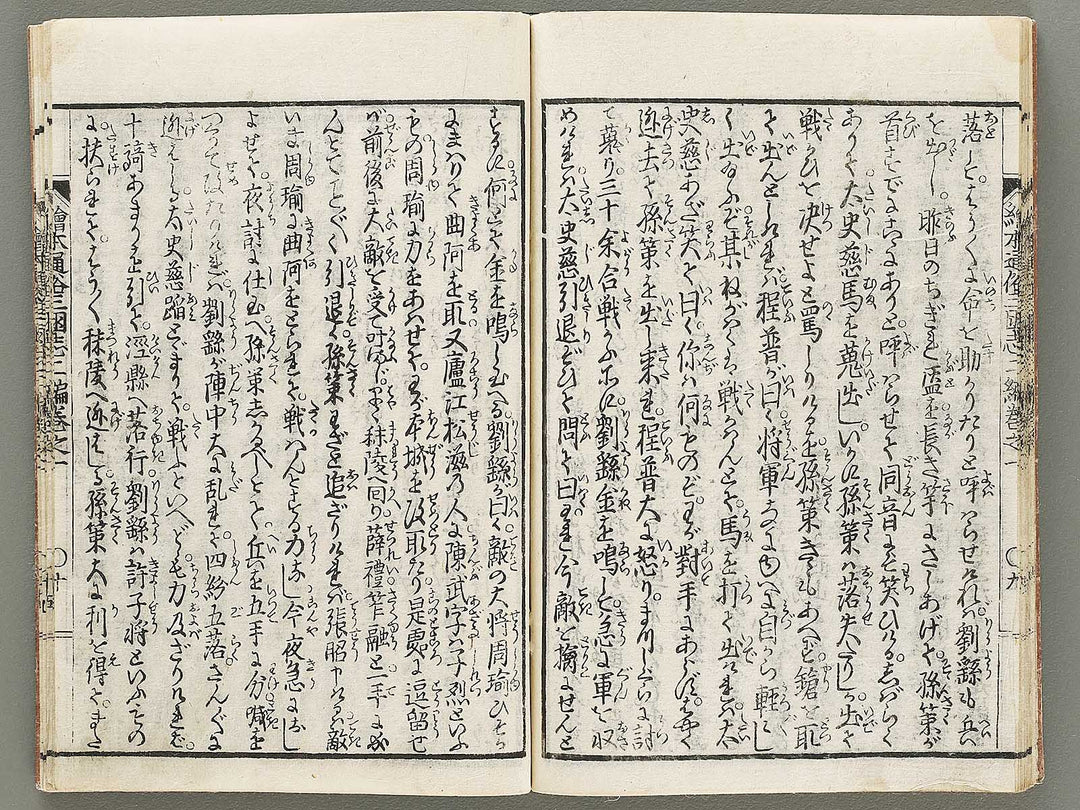 落とさばうくて命を助かりたりと呼はらせければ劉繇も兵
を出し。昨日のちぎれ盔を長き竿にさしあげて。孫策が
首すでにこゝにありと呼はらせて同音にぞ笑ひける。しばらく
ありて太史慈馬を乗出し。いかに孫策は落失たりしか。出て
戦ひを決せよと罵しりける。孫策きゝもあへず鎗を取
て出んとしければ程普が曰く将軍
く出
史慈あざ笑て曰く。你は何ものぞ。わが對手にあらず。早く
逃去て孫策を出し来れ。程普大に怒り。まつしぐらに討
て蒐り。三十余合戦かふ所に。劉繇金を鳴して急に軍を収
めければ。太史慈引退ぞひて問て曰く。われ今敵を擒にせんと
繪本通俗三國志二編巻之一 〇九
するに何とて金を鳴し玉へる。劉繇が曰く。敵の大将周瑜ひそか
にまはりて曲阿を取。又廬江松滋の人に陳武字は子烈といふ
もの周瑜に力をあはせて。わが本城を攻取たり。是處に逗留せ
ば前後に大敵を受て叶ふまじ。早く秣陵へ回り。薛禮笮融と一手に成
んとてことごとく引退く。孫策もさを追ざりければ。張昭申けるは。敵
いま周瑜に曲河をとられて。戦はんとする力なし。今夜急におし
よせて。夜討に仕玉へ。孫策しかるべしとて。兵を五手に分。喊を
つくつて攻たりければ。劉繇が陣中大に乱れて。四紛五落さんざんに
逃はしる。太史慈踏とゞまりて。戦ふといへども。力及ざりければ。
十騎あまりを引て。涇縣へ落行。劉繇は許子将といふもの
に扶られて。はうはう秣陵へ逃はしる。孫策大に利を得て。また
繪本通俗三國志二編巻之一 〇十